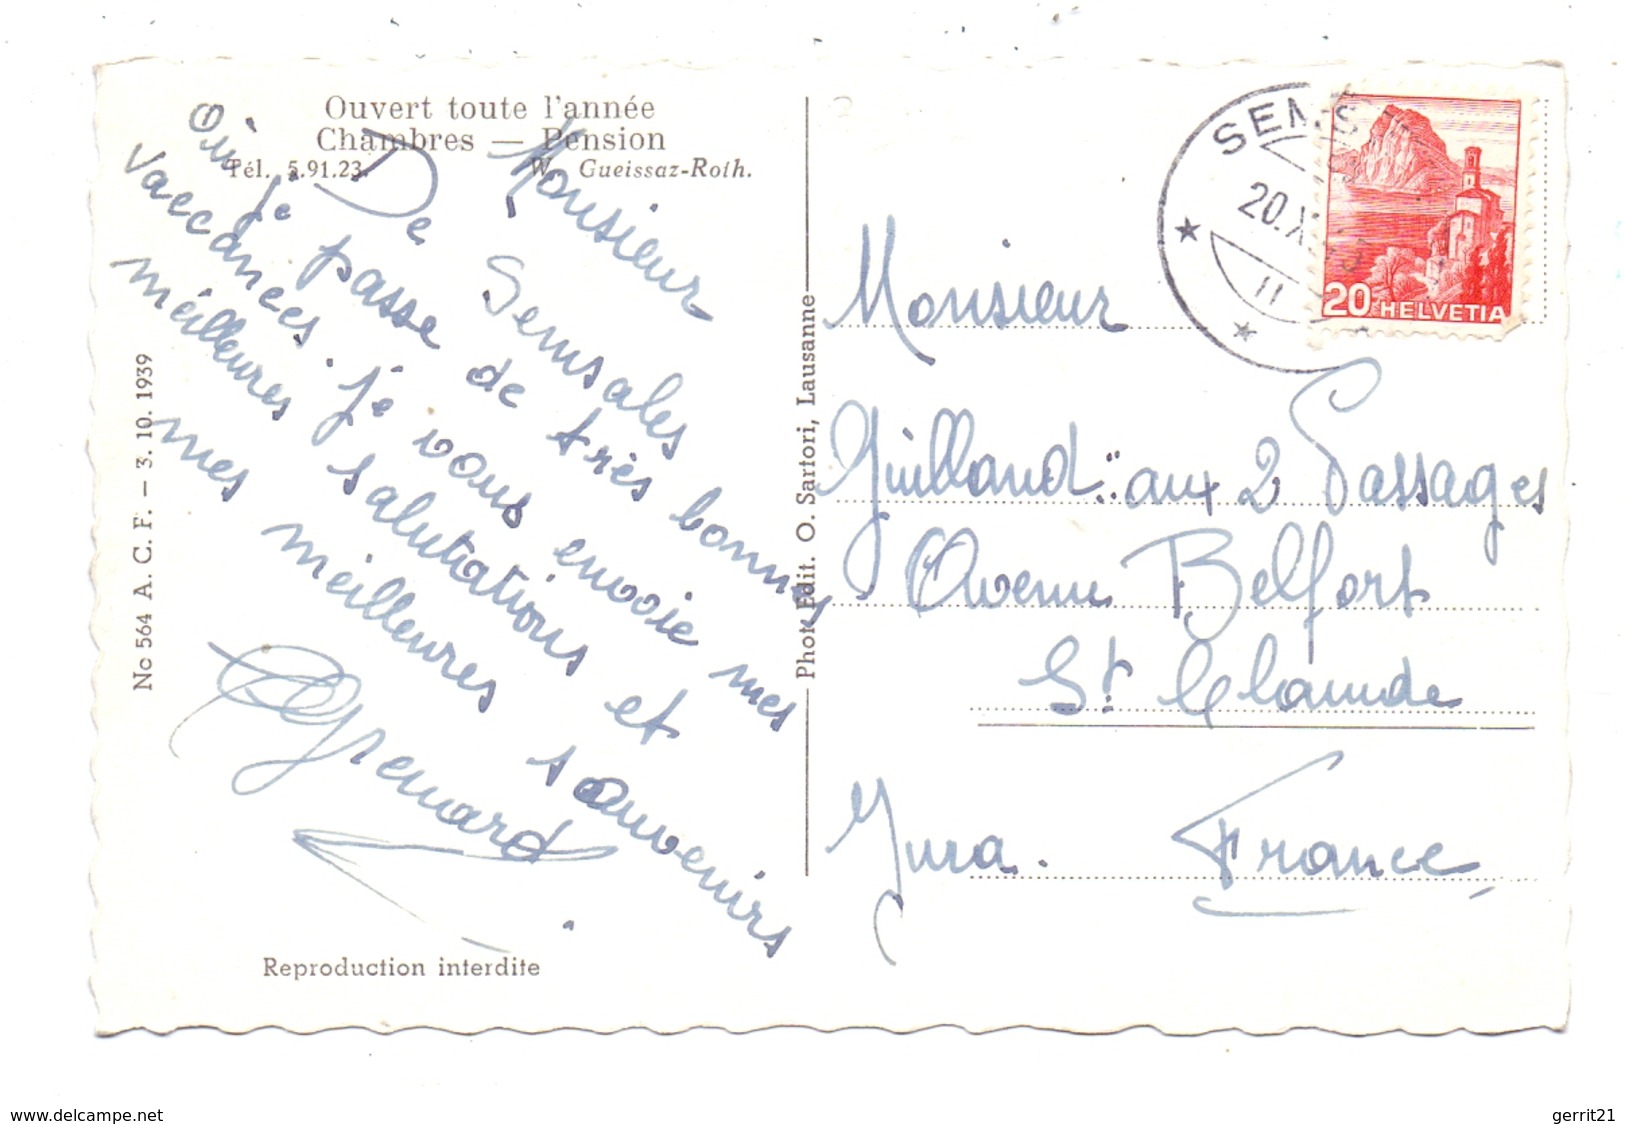 Ouvert toute l'année
Chambres — Pension
Tél. 5.91.23. W. Gueissaz-Roth.
Monsieur
De Semsales
Où je passe de très bonnes
vaccances. je vous envoie mes
meilleures salutations et
mes meilleures souvenirs
Grenard
No 564 A. C. F. — 3. 10. 1939
Reproduction interdite
Phot. Edit. O. Sartori, Lausanne
SEMS
20.X
11
20 HELVETIA
Monsieur
Guilland "aux 2 Passages
Avenue Belfort
St Claude
Jura. France
www.delcampe.net
gerrit21